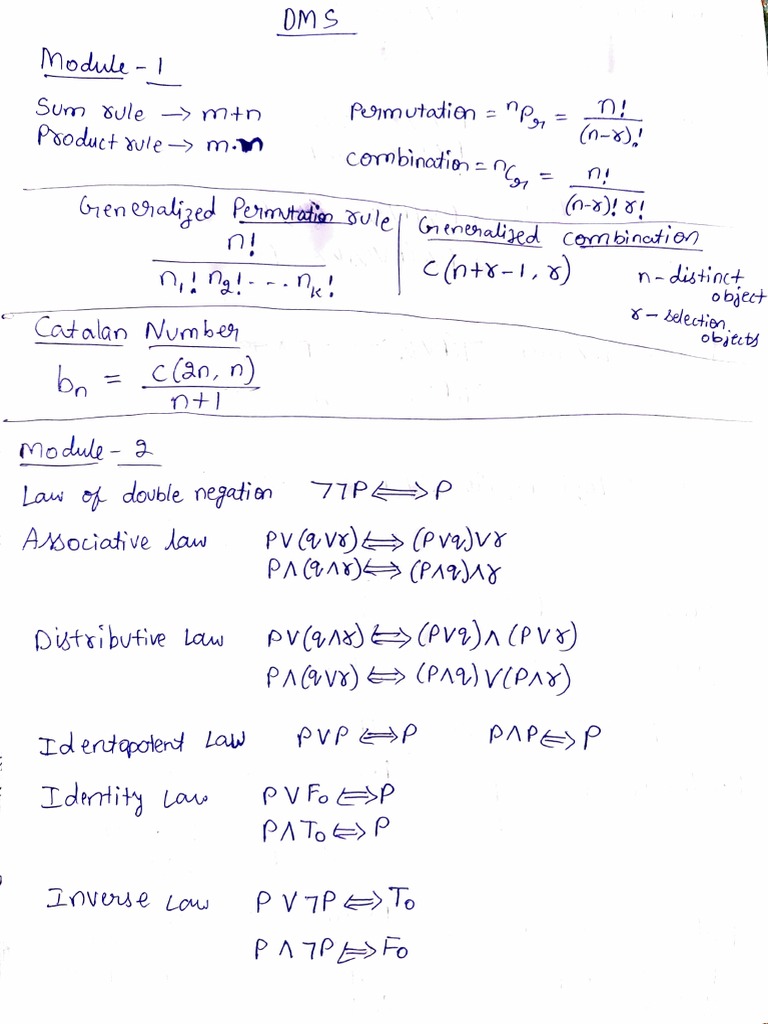 DMS
Module - 1
Sum rule → m+n
Product rule → m.n
Permutation = ⁿPᵣ = n! / (n-r)!
combination = ⁿCᵣ = n! / (n-r)! r!
Generalized Permutation rule
n! / n₁! n₂! - - - nₖ!
Generalized combination
C(n+r-1, r)
n - distinct object
r - selection objects
Catalan Number
bₙ = C(2n, n) / n+1
Module - 2
Law of double negation ¬¬P ⟺ P
Associative law P∨(q∨r) ⟺ (P∨q)∨r
P∧(q∧r) ⟺ (P∧q)∧r
Distributive Law P∨(q∧r) ⟺ (P∨q)∧(P∨r)
P∧(q∨r) ⟺ (P∧q)∨(P∧r)
Identopotent Law P∨P ⟺ P P∧P ⟺ P
Identity Law P∨F₀ ⟺ P
P∧T₀ ⟺ P
Inverse Law P∨¬P ⟺ T₀
P∧¬P ⟺ F₀